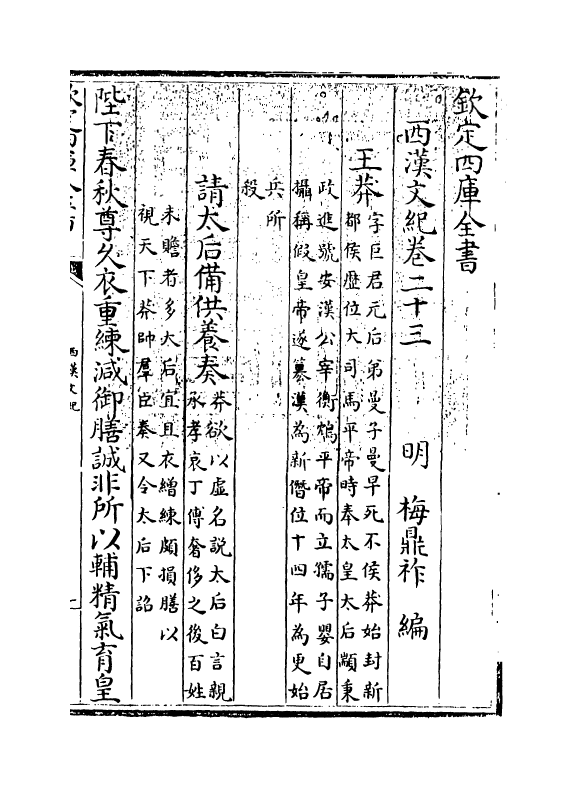 欽定四庫全書
西漢文紀卷二十三
明 梅鼎祚 編
王莽
字巨君元后弟曼子曼早死不侯莽始封新
都侯歴位大司馬平帝時奉太皇太后顓秉
政進號安漢公宰衡鴆平帝而立孺子嬰自居
攝稱假皇帝遂簒漢為新僭位十四年為更始
兵所
殺
請太后備供養奏
莽欲以虚名說太后白言親
承孝哀丁傅奢侈之後百姓
未贍者多太后宜且衣繒練頗損膳以
視天下莽帥羣臣奏又令太后下詔
陛下春秋尊久衣重練減御膳誠非所以輔精氣育皇
西漢文紀
一